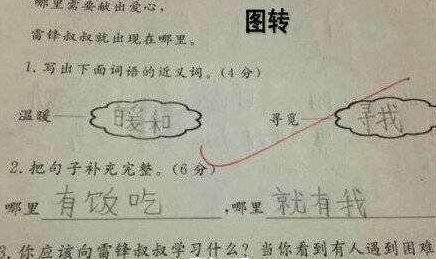 哪里需要献出爱心，
图转
雷锋叔叔就出现在哪里。
1.写出下面词语的近义词。(4分)
温暖 暖和 寻觅 寻找
2.把句子补充完整。(6分)
哪里有饭吃，哪里就有我
3.你应该向雷锋叔叔学习什么？当你看到有人遇到困难